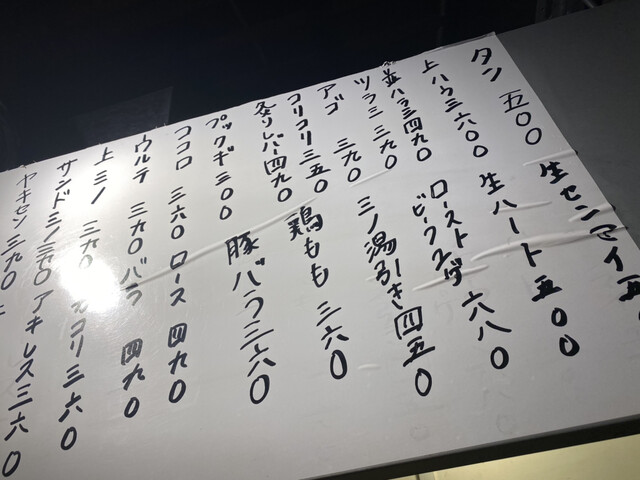 タン 五〇〇
上ハラミ六〇〇
並ハラミ四九〇
ツラミ 三九〇
アゴ 三九〇
コリコリ 三五〇
炙りレバー四九〇
プップギ三〇〇
ココロ 三六〇
ウルテ 三九〇
上ミノ 三九〇
サンドミノ三九〇
ヤキセン 三九〇
生センマイ
生ハート 五〇〇
ローストビーフユッケ 六八〇
ミノ湯引き 四五〇
鶏もも 三六〇
豚バラ三六〇
ロース 四九〇
バラ 四九〇
コリ三六〇
アキレス三六〇